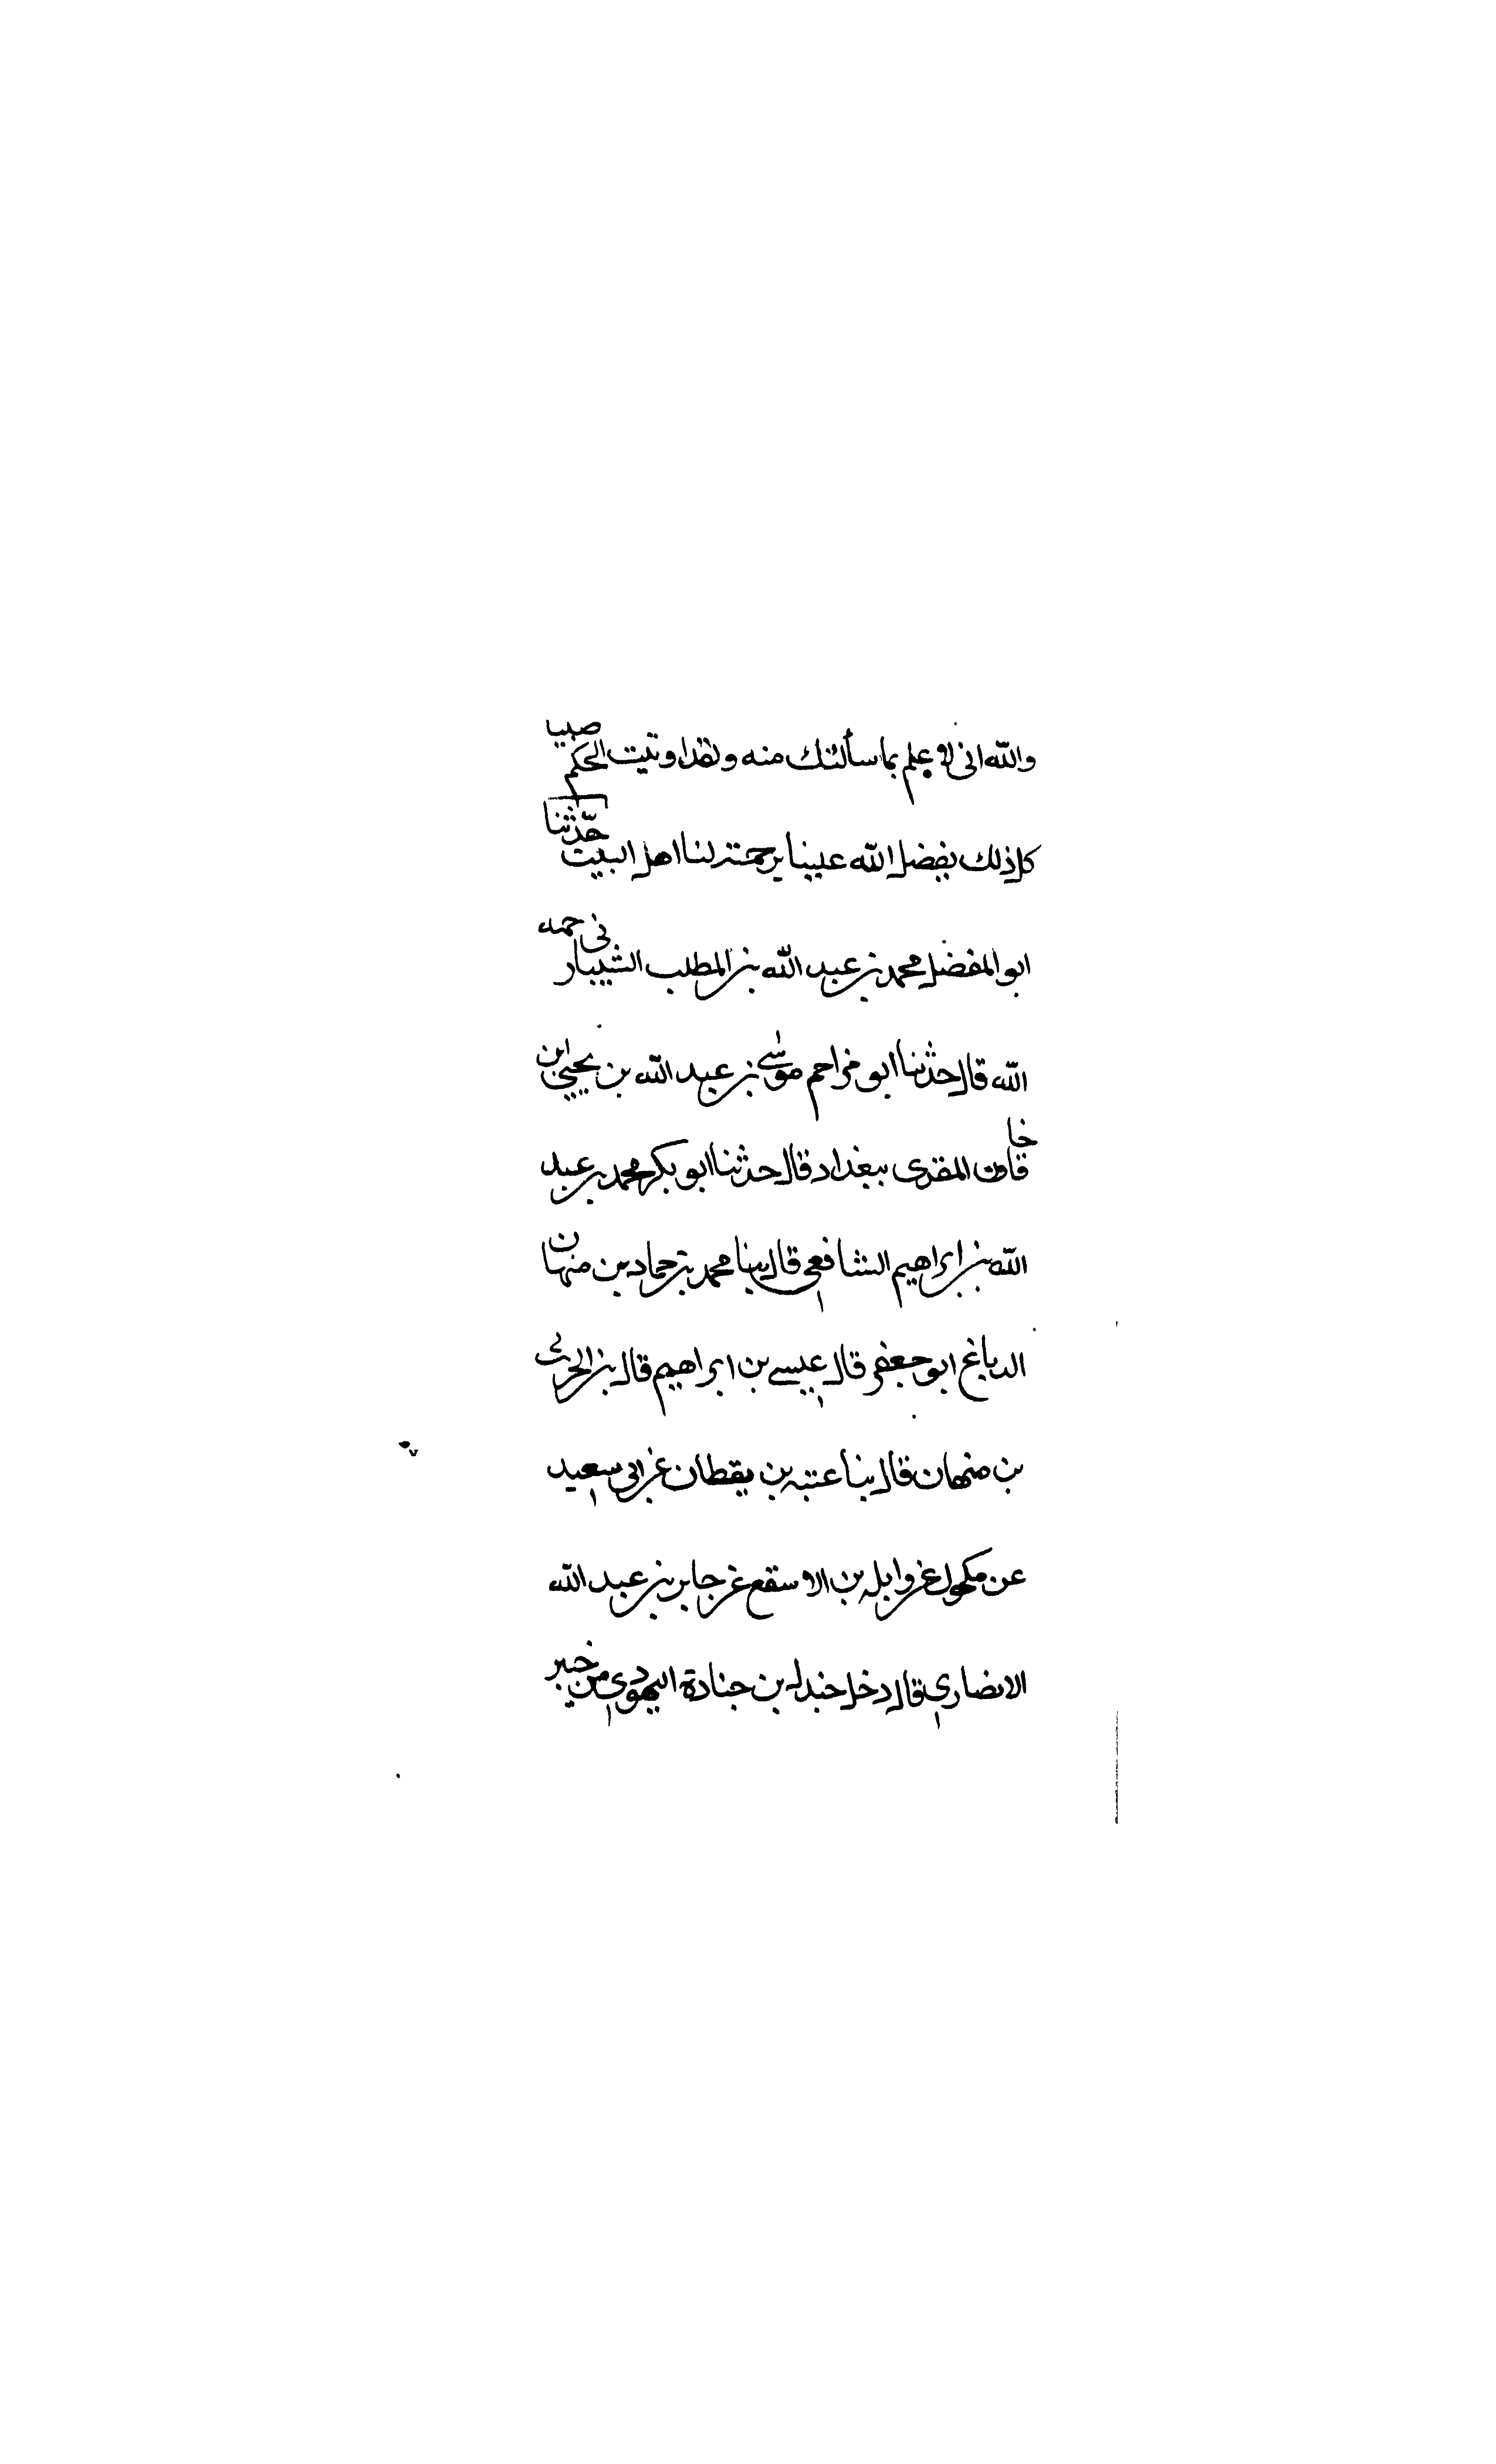 والله انى لاعلم بما سألتك منه ولقد اوتيت الحكم صبيا
كل ذلك بفضل الله علينا برحمته لنا اهل البيت حدثنا
ابو المفضل محمد بن عبد الله بن المطلب الشيبانى رحمه
الله قال حدثنا ابو مزاحم موسى بن عبد الله بن يحيى بن
خاقان المقرى ببغداد قال حدثنا ابو بكر محمد بن عبد
الله بن ابراهيم الشافعي قال بنا محمد بن حماد بن منهان
الدباغ ابو جعفر قال عيسى بن ابراهيم قال بن الحرث
بن منهان قال بنا عتبه بن يقطان عن ابى سعيد
عن مكحول عن وايله بن الاسقع عن جابر بن عبد الله
الانصاري قال دخل جندله بن جنادة اليهودي من خيبر